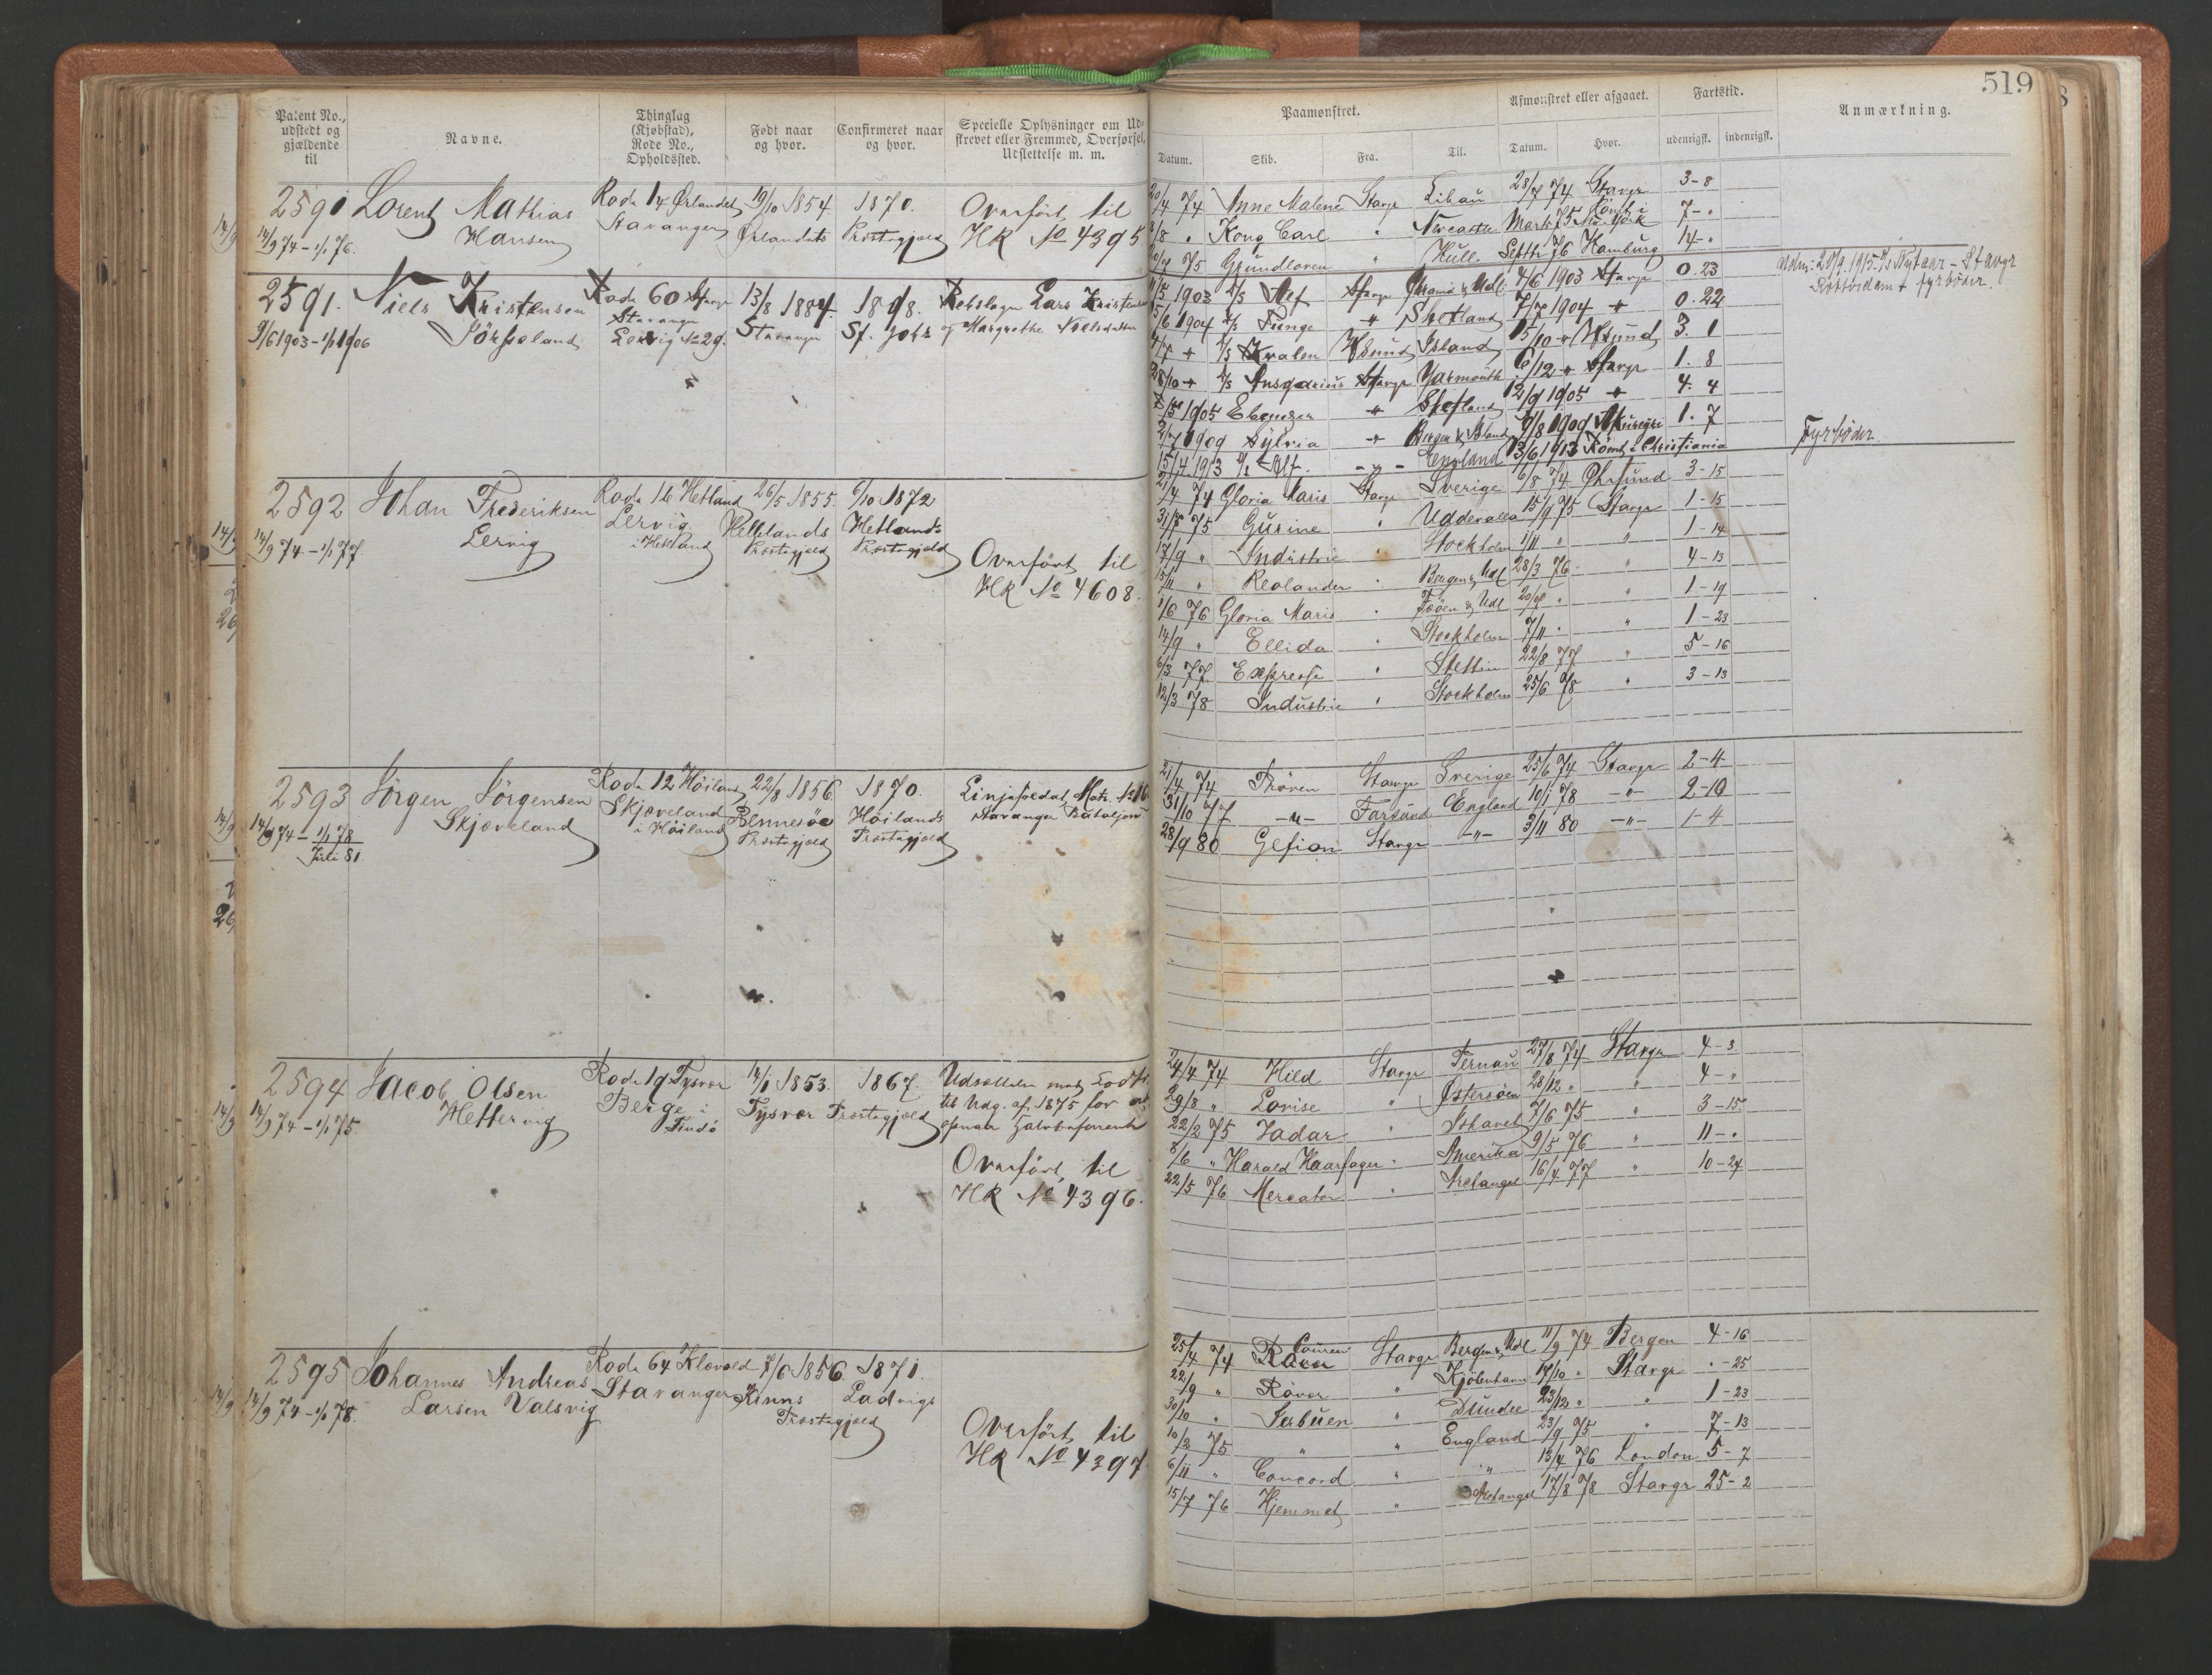 519
Patent No., udstedt og gjældende til
Navne.
Thinglag (Kjøbstad), Rode No., Opholdssted.
Født naar og hvor.
Confirmeret naar og hvor.
Specielle Oplysninger om Udskrevet eller Fremmed, Overførsel, Udslettelse m. m.
Paamønstret.
Afmønstret eller afgaaet.
Fartstid.
Anmærkning.
Datum. Skib. Fra. Til. Datum. Hvor. udenrigsk. indenrigsk.
2590 Lorentz Mathias Rode 14 Ørlandet 19/10 1854 1870. Overført til
14/9 74 - 1/1 76. Hansen Stavanger Ørlandets Præstegjeld HR No 4395
20/4 74 Anne Malene Stavgr Libau 28/7 74 Stavgr 3-8
8/8 " Kong Carl " Newcastle Marts 75 Römt i New York 7-"
75 Grundloven " Hull Septbr 76 Hamburg 14-"
2591. Niels Kristensen Rode 60 Stavgr 13/8 1884. 1898. Rebslager Lars Kristensen
9/6 1903 - 1/1 1906 Sörhseland Stavanger Stavanger St. Joh. og Margrethe Nielsdatter
Lervig No 29.
1903 D/S Alf Stavgr & Udl. 4/6 1903 Stavgr 0.23
/6 1904 D/S Funge " Shetland 7/7 1904 " 0.22
/7 " D/S Kvalen Hsund Island 15/10 " Hsund 3. 1
28/10 " D/S Ansgarius Stavgr Yarmouth 6/12 " Stavgr 1. 8
/5 1905 Ebenezer " Shetland 12/9 1905 " 4. 4
2/7 1909 Sylvia " Bergen & Island 9/8 1909 1. 7
15/4 1913 D/S Alf. -"- England 13/6 1913 Römt i Christiania
28/9.1915 - Stavgr
Rotterdam + fyrböder.
Fyrböder.
2592 Johan Frederiksen Rode 16 Hetland 26/5 1855. 6/10 1872
14/9 74 - 1/1 77. Lervig Lervig i Hetland Hetlands Præstegjeld Hetlands Præstegjeld
Overført til
HR No 4608.
21/4 74 Gloria Maris Stavgr Sverige 6/8 74 3-15
31/7 75 Gurine " Uddevalla 15/9 75 Stavgr 1-15
17/9 " Industrie " Stockholm 1/11 " " 1-14
15/11 " Reolander " Bergen & Udl 28/3 76. " 4-13
1/6 76 Gloria Maris " & Udl " " 1-19
14/9 " Ellida " Stockholm 7/11 " " 1-23
6/3 77 Expresse " Stettin 22/8 77 " 5-16
12/3 78 Industrie " Stockholm 25/6 78 " 3-13
2593 Jörgen Jörgensen Rode 12 Höiland 22/8 1856. 1870. Linjesoldat Matr. No 16
14/9 74 - 1/1 78 Skjæveland Skjæveland i Höiland Rennesöe Præstegjeld Höilands Præstegjeld Stavanger Bataljon
Juli 81.
21/4 74 Pröven Stavgr Sverige 25/6 74 Stavgr 2-4
31/10 77 -"- Farsund England 10/1 78 -"- 2-10
28/9 80 Gefion Stavgr -"- 3/11 80 -"- 1-4
2594 Jacob Olsen Rode 19 Tysvær 14/1 1853. 1867. Udsættelse med
14/9 74 - 1/1 75. Hettervig Berge i Findö Tysvær Præstegjeld til Udg. af 1875 for
Overført til
HR No 4396.
24/4 74 Hild Stavgr Pernau 27/8 74 Stavgr 4-3
29/8 " Lovise " Østersöen 28/12 " " 4-"
22/2 75 Jadar " 7/6 75 " 3-15
8/6 " Harald Haarfager " Amerika 9/5 76 " 11-"
22/5 76 Mercator " Archangel 16/4 77 " 10-24
2595 Johannes Andreas Rode 64 7/6 1856. 1871.
14/9 74 - 1/1 78. Larsen Valsvig Stavanger Kinns Ladvigs
Præstegjeld
Overført til
HR No 4397
25/4 74 Coureer Stavgr Bergen & Udl 11/9 74 Bergen 4-16
22/9 " Röver " Kjöbenhavn 17/10 " Stavgr "-25
30/10 " Jarbuen " Dundee 23/12 " " 1-23
10/2 75 " " England 23/9 75 " 7-13
6/11 " Concord " " 13/4 76 London 5-7
15/7 76 Hjemmet " Archangel 17/8 78 Stavgr 25-2